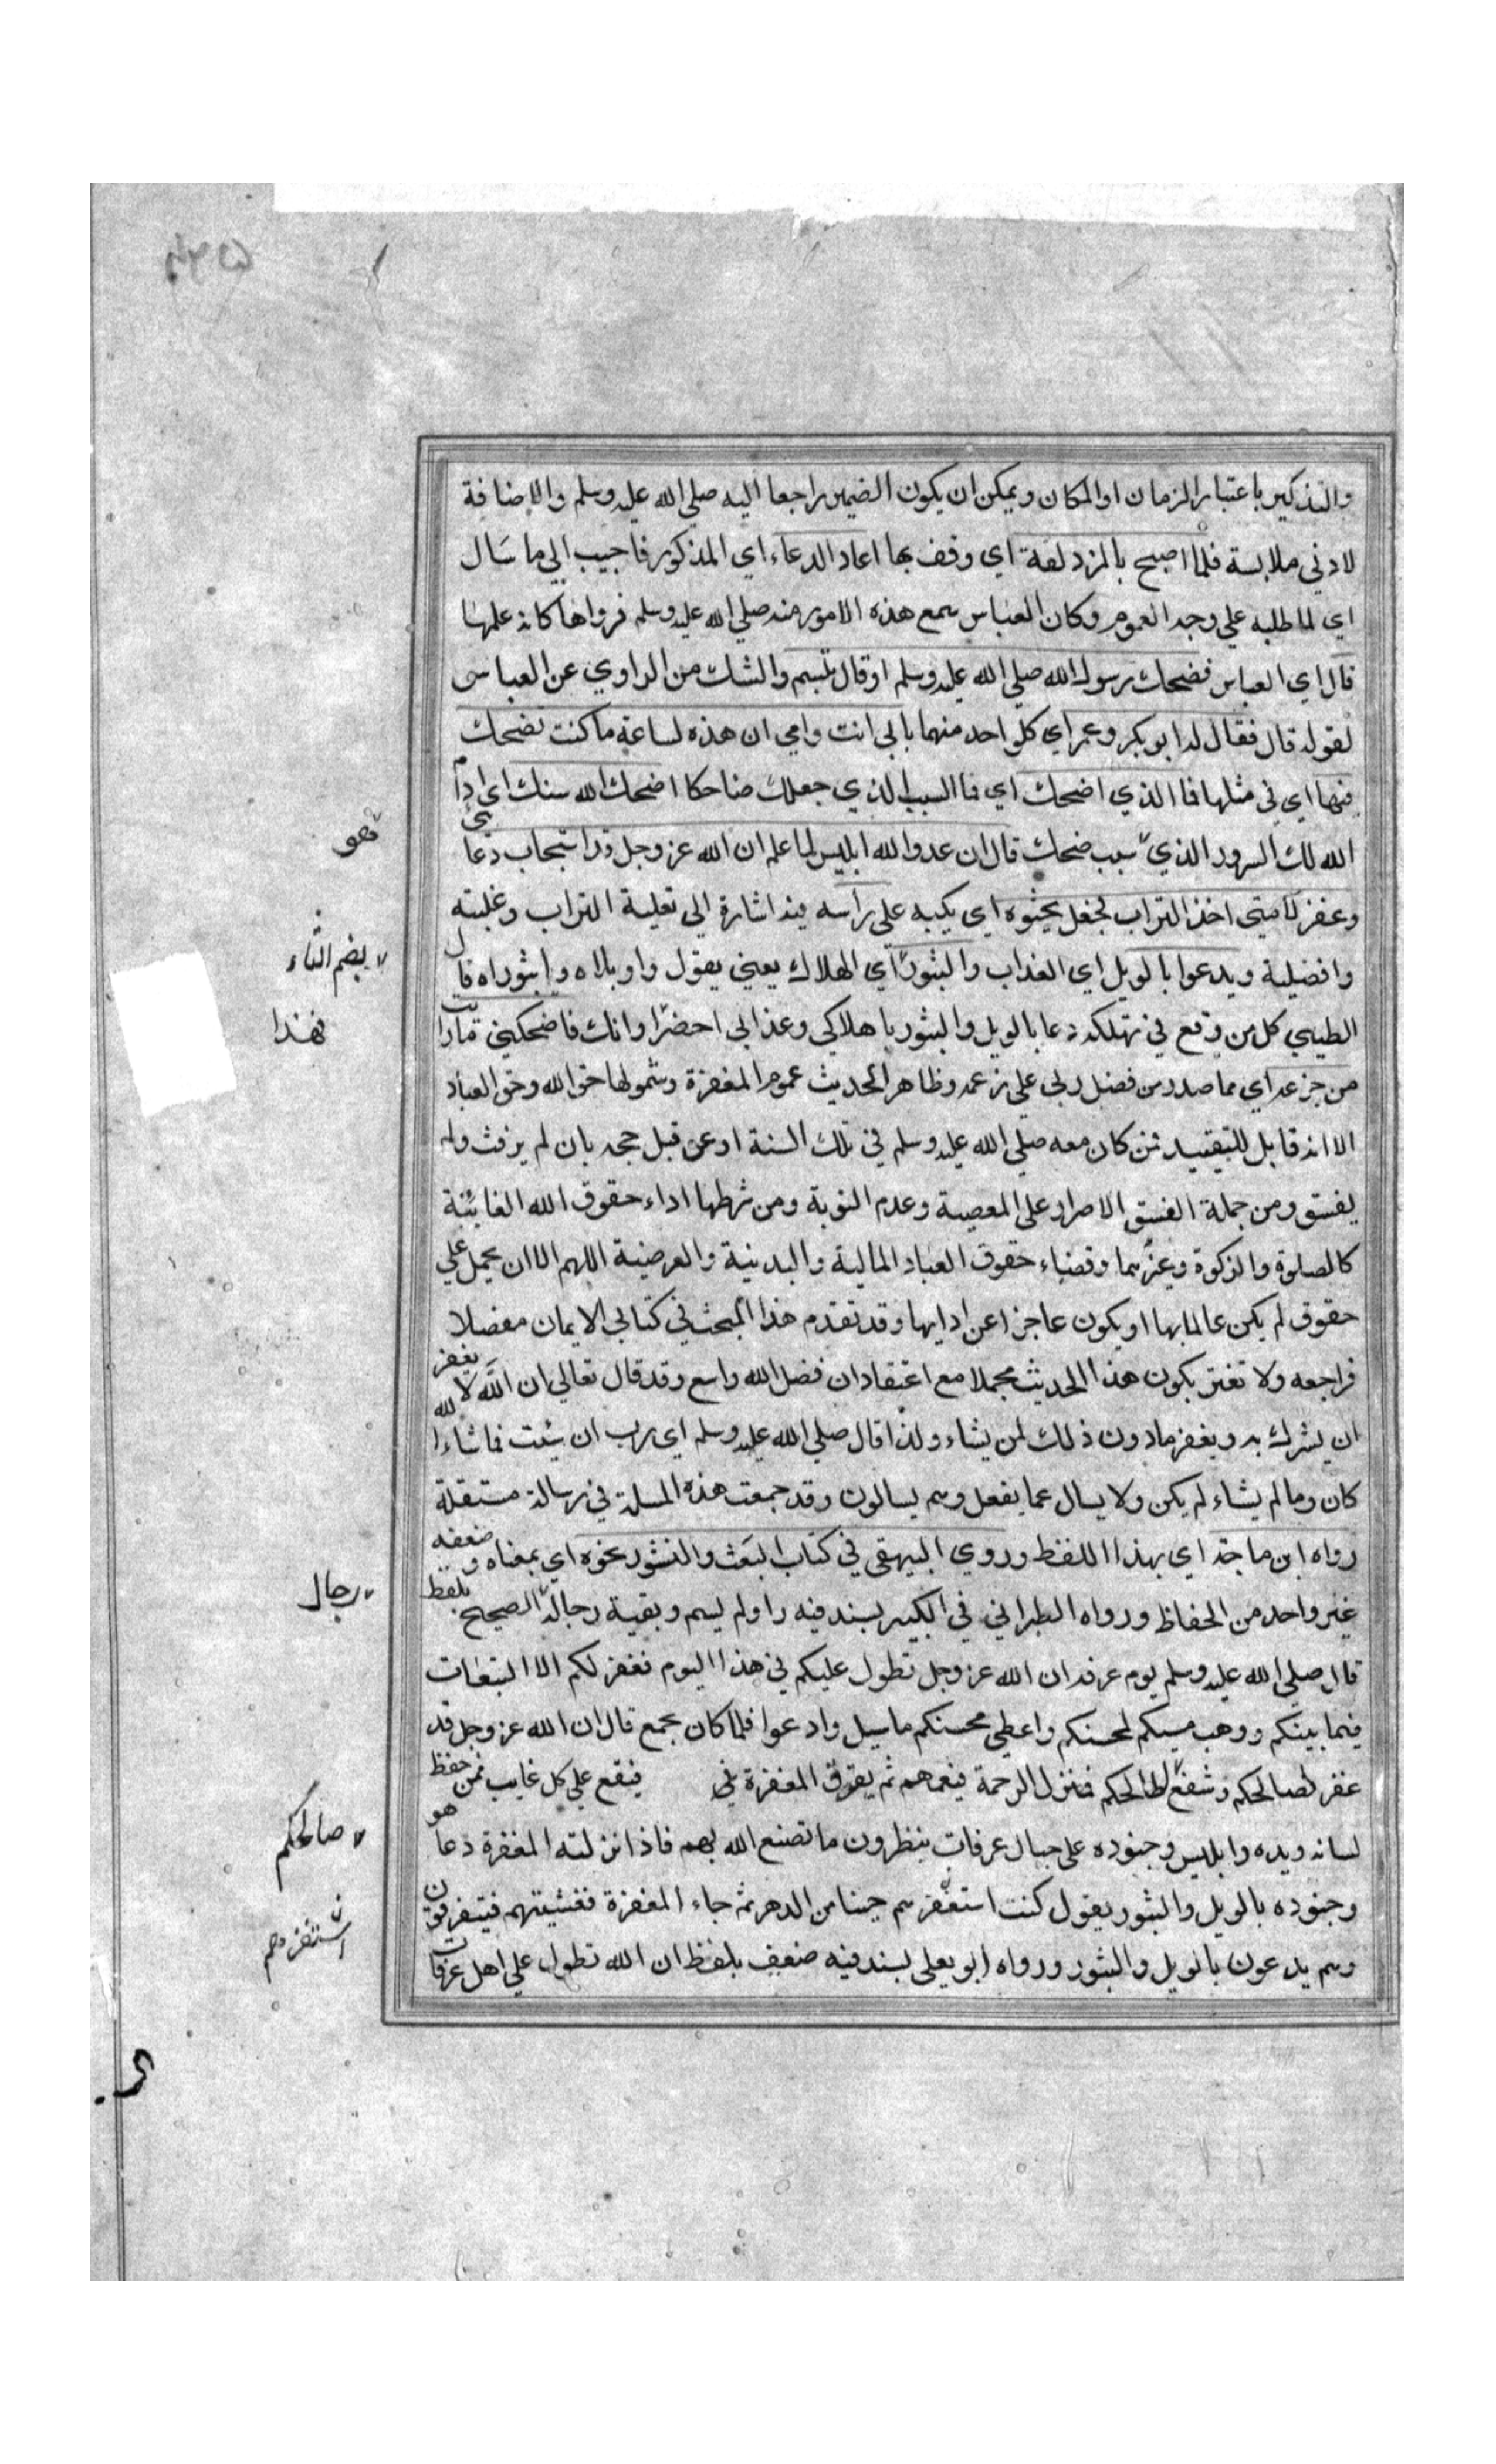 والتذكير باعتبار الزمان او المكان ويمكن ان يكون الضمير راجعا اليه صلي الله عليه وسلم والاضافة
لادني ملابسة فلما اصبح بالمزدلفة اي وقف بها اعاد الدعاء اي المذكور فاجيب الي ما سَال
اي لما طلبه علي وجه العموم وكان العباس سمع هذه الامور منه صلي الله عليه وسلم فرواها كانه علمها
قال اي العباس فضحك رسول الله صلي الله عليه وسلم او قال تبسم والشك من الراوي عن العباس
لقوله قال فقال له ابو بكر وعمر اي كل واحد منهما بابي انت وامي ان هذه لساعة ما كنت تضحك
فيها اي في مثلها فما الذي اضحك اي فما السبب الذي جعلك ضاحكا اضحك الله سنك اي ادام
الله لك السرور الذي سبب ضحك قال ان عدو الله ابليس لما علم ان الله عز وجل قد استجاب دعائي
وغفر لامتي اخذ التراب فجعل يحثوه اي يكبه علي راسه فيه اشارة الي تعلية التراب وغلبته
وافضلية ويدعوا بالويل اي العذاب والثبور اي الهلاك يعني يقول واويلاه واثبوراه قال
الطيبي كل من وقع في تهلكة دعا بالويل والثبور يا هلاكي وعذابي احضر اوانك فاضحكني ما رايت
من جزعه اي مما صدر من فضل ربي علي رغمه وظاهر الحديث عموم المغفرة وشمولها حق الله وحق العباد
الا انه قابل للتقييد بمن كان معه صلي الله عليه وسلم في تلك السنة او عن قبل حجه بان لم يرفث ولم
يفسق ومن جملة الفسق الاصرار علي المعصية وعدم التوبة ومن شرطها اداء حقوق الله الفائتة
كالصلوة والزكوة وغيرهما وقضاء حقوق العباد المالية والبدنية والعرضية اللهم الا ان يحمل علي
حقوق لم يكن عالما بها او يكون عاجزا عن ادايها وقد تقدم هذا المبحث في كتاب الايمان مفصلا
فراجعه ولا تغتر بكون هذا الحديث مجملا مع اعتقاد ان فضل الله واسع وقد قال تعالي ان الله لا يغفر
ان يشرك به ويغفر ما دون ذلك لمن يشاء ولذا قال صلي الله عليه وسلم اي رب ان شئت فما شاء الله
كان وما لم يشاء لم يكن ولا يسال عما يفعل وهم يسالون وقد جمعت هذه المسلة في رسالة مستقلة
رواه ابن ماجة اي بهذا اللفظ وروي البيهقي في كتاب البَعث والنشور نحوه اي بمعناه وضعفه
غير واحد من الحفاظ ورواه الطبراني في الكبير بسند فيه راو لم يسم وبقية رجاله الصحيح بلفظ
قال صلي الله عليه وسلم يوم عرفه ان الله عز وجل تطول عليكم في هذا اليوم فغفر لكم الا التبعات
فيما بينكم ووهب مسيكم لمحسنكم واعطي محسنكم ما سيل وادعوا فلما كان بجمع قال ان الله عز وجل قد
غفر لصالحكم وشفع لطالحكم فتنزل الرحمة فيعمهم ثم يفرق المغفرة في فيقع علي كل غايب ممن حفظ
لسانه ويده وابليس وجنوده علي جبال عرفات ينظرون ما تصنع الله بهم فاذا نزلته المغفرة دعا هو
وجنوده بالويل والثبور يقول كنت استغفرهم حينا من الدهر ثم جاء المغفرة فغشيتهم فيتفرقون
وهم يدعون بالويل والثبور ورواه ابو يعلي بسند فيه ضعيف بلفظ ان الله تطول علي اهل عرفات
فهو
بضم الثاء
فهذا
رجال
صالحكم
استفزهم